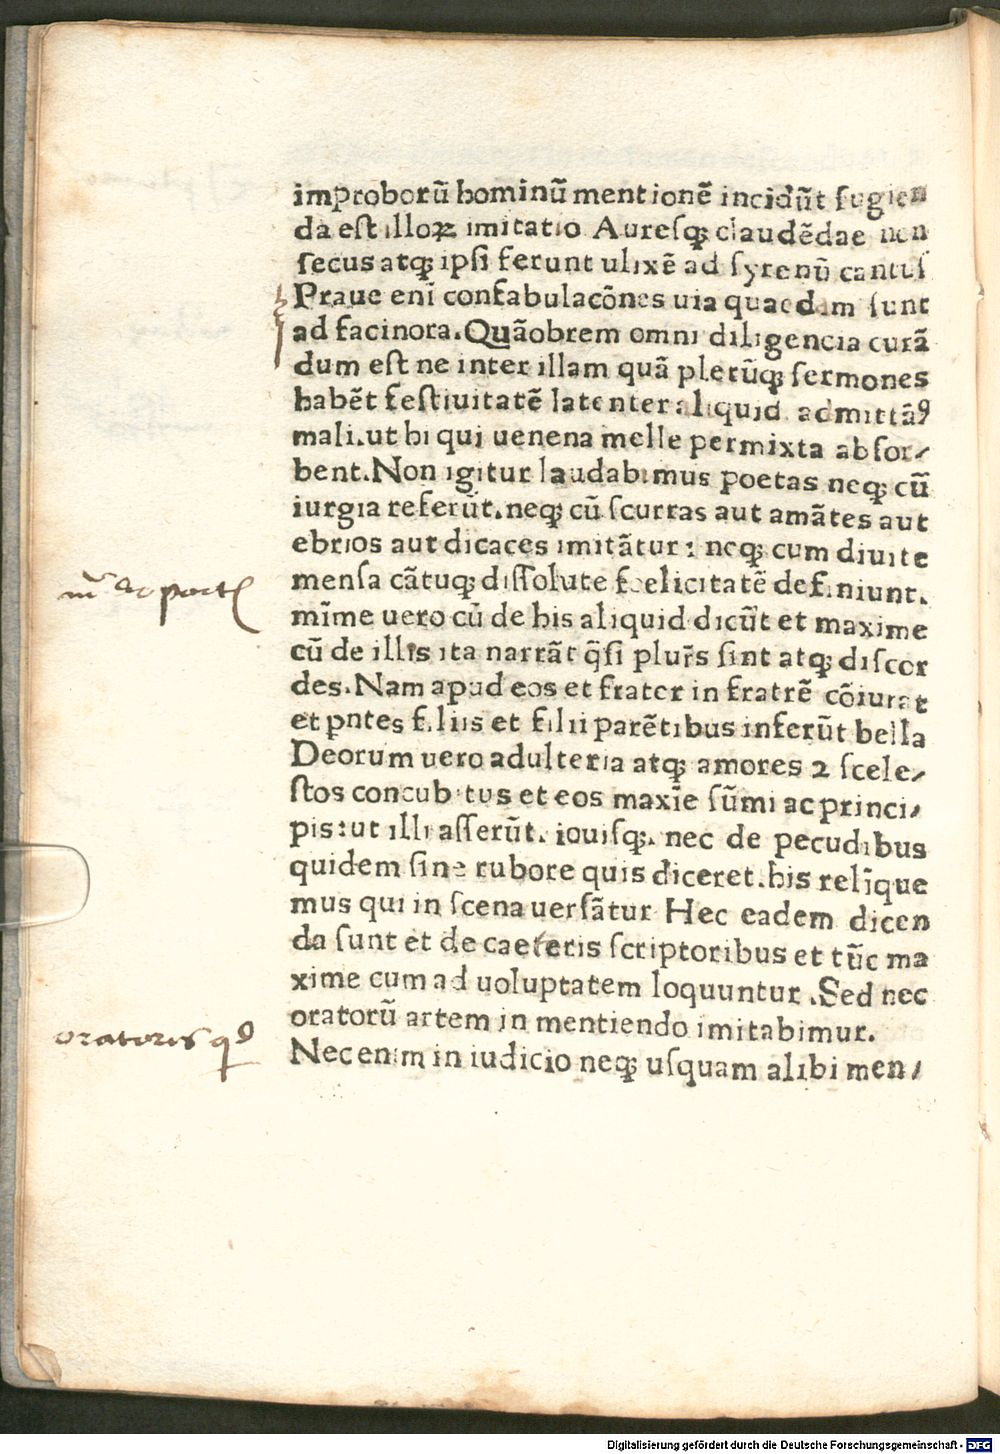 improborū hominū mentionē incidūt fugien
da est illoꝝ imitatio Auresqꝫ claudēdae non
secus atqꝫ ipsi ferunt ulixē ad syrenū cantus
Praue eni᷈ confabulacōnes uia quaedam sunt
ad facinora. Quāobrem omni diligencia curā
dum est ne inter illam quā plerūqꝫ sermones
habēt festiuitatē latenter aliquid admittāꝰ
mali. ut hi qui uenena melle permixta absor⸗
bent. Non igitur laudabimus poetas neqꝫ cū
iurgia referūt. neqꝫ cū scurras aut amātes aut
ebrios aut dicaces imitātur: neqꝫ cum diuite
mensa cātuqꝫ dissolute foelicitatē definiunt.
mīme uero cū de his aliquid dicūt et maxime
cū de illis ita narrāt q̄si plur̄s sint atqꝫ discor
des. Nam apud eos et frater in fratrē cōiurat
et pntes filiis et filii parētibus inferūt bella
Deorum uero adulteria atqꝫ amores ⁊ scele⸗
stos concubitus et eos maxīe sūmi ac princi⸗
pis: ut illi asserūt. iouisqꝫ. nec de pecudibus
quidem sine rubore quis diceret. his relīque
mus qui in scena uersātur Hec eadem dicen
da sunt et de caeteris scriptoribus et tūc ma
xime cum ad uoluptatem loquuntur. Sed nec
oratorū artem in mentiendo imitabimur.
oratoris qꝰ
Nec enim in iudicio neqꝫ usquam alibi men⸗
Digitalisierung gefördert durch die Deutsche Forschungsgemeinschaft - DFG